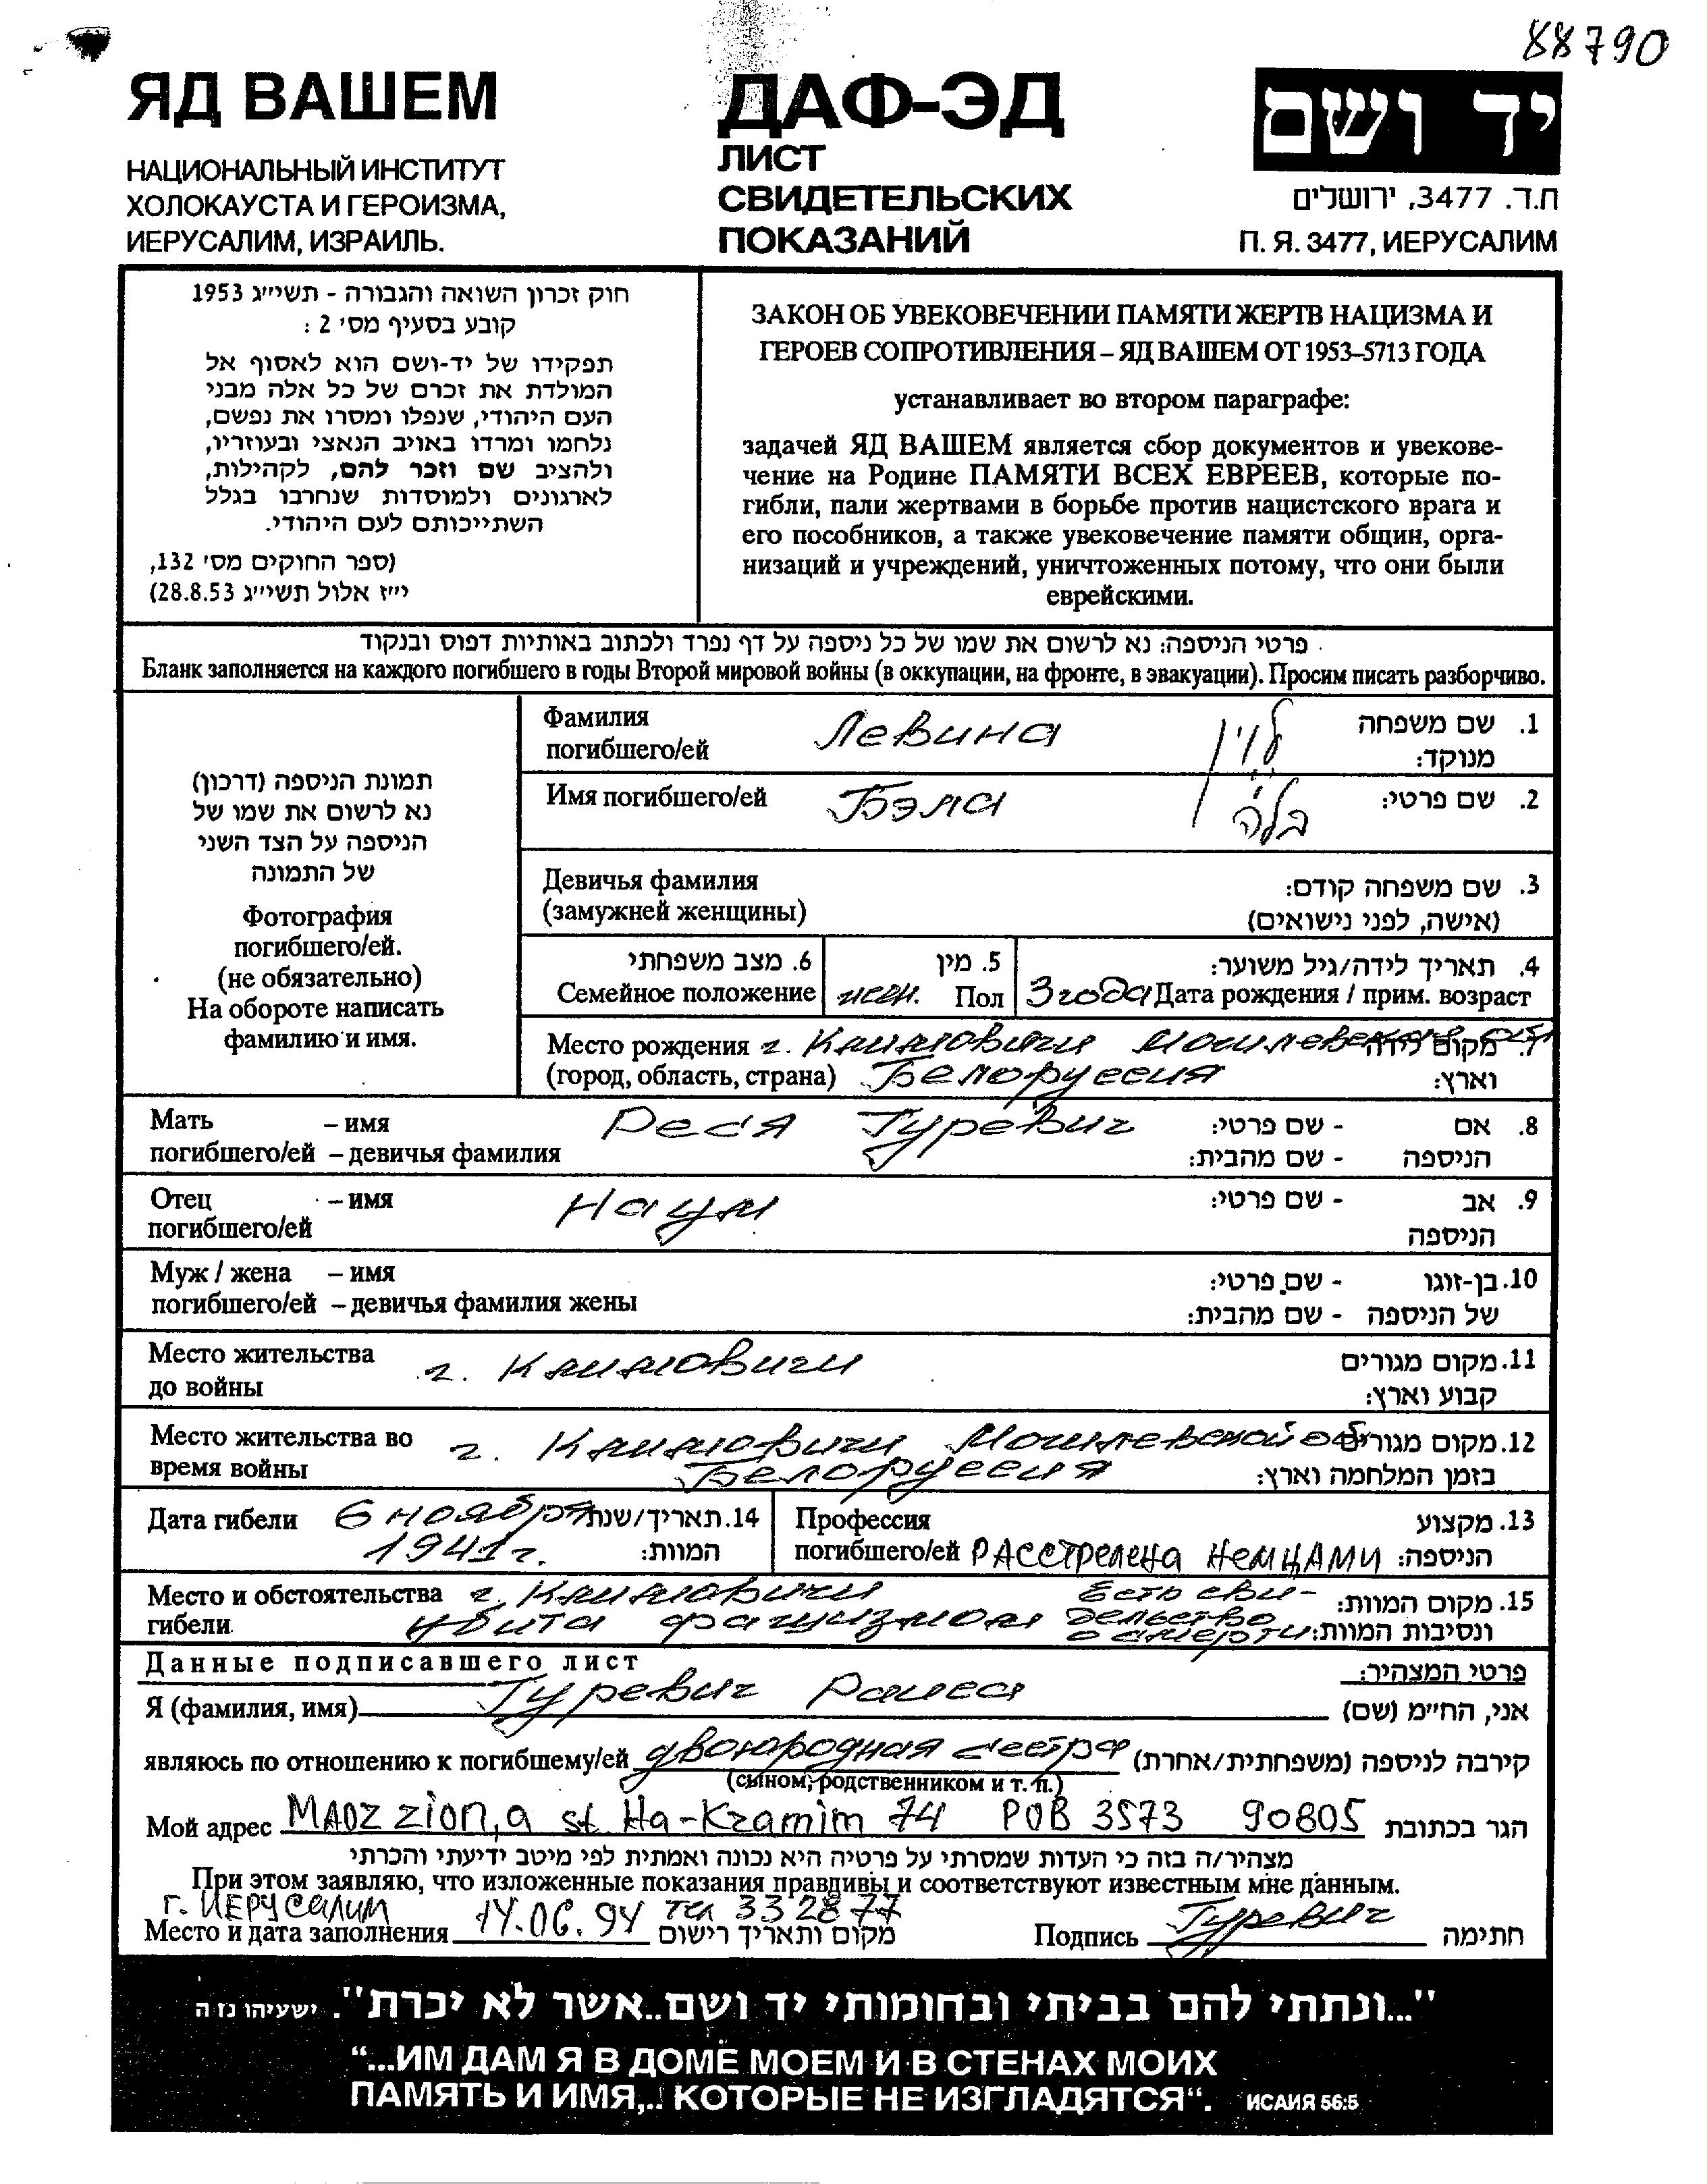 88790
ЯД ВАШЕМ
НАЦИОНАЛЬНЫЙ ИНСТИТУТ
ХОЛОКАУСТА И ГЕРОИЗМА,
ИЕРУСАЛИМ, ИЗРАИЛЬ.
ДАФ-ЭД
ЛИСТ
СВИДЕТЕЛЬСКИХ
ПОКАЗАНИЙ
יד ושם
ת.ד. 3477, ירושלים
П. Я. 3477, ИЕРУСАЛИМ
חוק זכרון השואה והגבורה - תשי״ג 1953
קובע בסעיף מס׳ 2 :
תפקידו של יד-ושם הוא לאסוף אל
המולדת את זכרם של כל אלה מבני
העם היהודי, שנפלו ומסרו את נפשם,
נלחמו ומרדו באויב הנאצי ובעוזריו,
ולהציב שם וזכר להם, לקהילות,
לארגונים ולמוסדות שנחרבו בגלל
השתייכותם לעם היהודי.
(ספר החוקים מס׳ 132,
י״ז אלול תשי״ג 28.8.53)
ЗАКОН ОБ УВЕКОВЕЧЕНИИ ПАМЯТИ ЖЕРТВ НАЦИЗМА И
ГЕРОЕВ СОПРОТИВЛЕНИЯ – ЯД ВАШЕМ ОТ 1953–5713 ГОДА
устанавливает во втором параграфе:
задачей ЯД ВАШЕМ является сбор документов и увекове-
чение на Родине ПАМЯТИ ВСЕХ ЕВРЕЕВ, которые по-
гибли, пали жертвами в борьбе против нацистского врага и
его пособников, а также увековечение памяти общин, орга-
низаций и учреждений, уничтоженных потому, что они были
еврейскими.
פרטי הניספה: נא לרשום את שמו של כל ניספה על דף נפרד ולכתוב באותיות דפוס ובנקוד
Бланк заполняется на каждого погибшего в годы Второй мировой войны (в оккупации, на фронте, в эвакуации). Просим писать разборчиво.
תמונת הניספה (דרכון)
נא לרשום את שמו של
הניספה על הצד השני
של התמונה
Фотография
погибшего/ей.
(не обязательно)
На обороте написать
фамилию и имя.
Фамилия Левина לוין 1. שם משפחה
погибшего/ей מנוקד:
Имя погибшего/ей Бэла בלה 2. שם פרטי:
Девичья фамилия 3. שם משפחה קודם:
(замужней женщины) (אישה, לפני נישואים)
6. מצב משפחתי 5. מין 4. תאריך לידה/גיל משוער:
Семейное положение жен. Пол 3 года Дата рождения / прим. возраст
Место рождения г. Климовичи Могилевская обл 7. מקום לידה
(город, область, страна) Белоруссия וארץ:
Мать – имя Реся Гуревич 8. אם - שם פרטי:
погибшего/ей – девичья фамилия הניספה - שם מהבית:
Отец – имя Наум 9. אב - שם פרטי:
погибшего/ей הניספה
Муж / жена – имя 10. בן-זוגו - שם פרטי:
погибшего/ей – девичья фамилия жены של הניספה - שם מהבית:
Место жительства г. Климовичи 11. מקום מגורים
до войны קבוע וארץ:
Место жительства во г. Климовичи Могилевской об 12. מקום מגורים
время войны Белоруссия בזמן המלחמה וארץ:
Дата гибели 6 ноября 14. תאריך/שנת
1941 г. המוות:
Профессия 13. מקצוע
погибшего/ей РАССТРЕЛЕНА НЕМЦАМИ הניספה:
Место и обстоятельства г. Климовичи Есть сви- 15. מקום המוות:
гибели Убита фашизмом детельство
о смерти ונסיבות המוות:
Данные подписавшего лист פרטי המצהיר:
Я (фамилия, имя) Гуревич Раиса אני, החי״מ (שם)
являюсь по отношению к погибшему/ей двоюродная сестра קירבה לניספה (משפחתית/אחרת)
(сыном, родственником и т. п.)
Мой адрес MAOZ zion, a st. Ha-Kramim 74 POB 3573 90805 הגר בכתובת
מצהיר/ה בזה כי העדות שמסרתי על פרטיה היא נכונה ואמתית לפי מיטב ידיעתי והכרתי
При этом заявляю, что изложенные показания правдивы и соответствуют известным мне данным.
г. ИЕРУСАЛИМ
Место и дата заполнения 14.06.94 тел 332877 מקום ותאריך רישום Подпись Гуревич חתימה
"...ונתתי להם בביתי ובחומותי יד ושם..אשר לא יכרת". ישעיהו נז ה
“...ИМ ДАМ Я В ДОМЕ МОЕМ И В СТЕНАХ МОИХ
ПАМЯТЬ И ИМЯ,.. КОТОРЫЕ НЕ ИЗГЛАДЯТСЯ“. ИСАИЯ 56:5